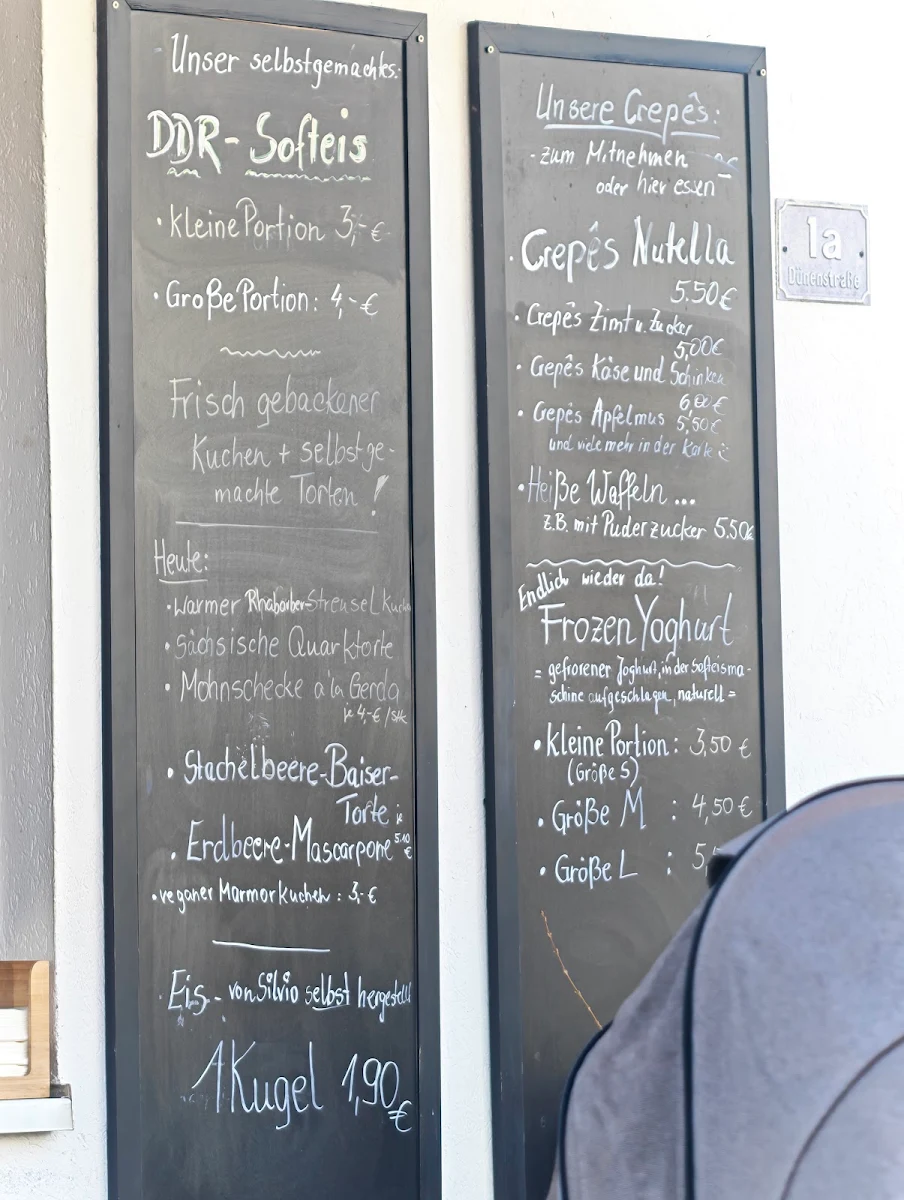 Unser selbstgemachtes:
DDR-Softeis
· Kleine Portion 3,-€
· Große Portion: 4,-€
Frisch gebackener
Kuchen + selbstge-
machte Torten !
Heute:
· Warmer Rhabarber-Streusel Kuchen
· Sächsische Quarktorte
· Mohnschecke a'la Gerda
je 4,-€ /Stk
· Stachelbeere-Baiser-
Torte je
· Erdbeere-Mascarpone 5.10 €
· veganer Marmorkuchen : 3,-€
Eis.. von Silvio selbst hergestellt
1 Kugel 1,90 €
Unsere Crepês:
- zum Mitnehmen
oder hier essen
· Crepês Nutella
5.50€
· Crepês Zimt u. Zucker
5,00€
· Crepês Käse und Schinken
6,00€
· Crepês Apfelmus 5,50€
und viele mehr in der Karte
· Heiße Waffeln ...
z.B. mit Puderzucker 5.50€
Endlich wieder da!
Frozen Yoghurt
= gefrorener Joghurt, in der Softeisma-
schine aufgeschlagen, naturell =
· Kleine Portion : 3,50 €
(Größe S)
· Größe M : 4,50 €
· Größe L : 5,
1a
Dünenstraße